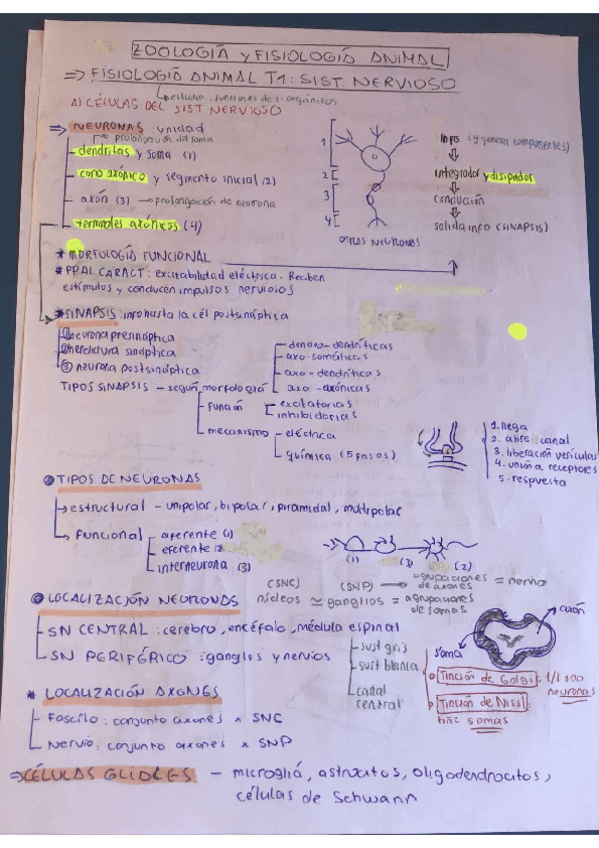 ZOOLOGÍA Y FISIOLOGÍA ANIMAL
⇒ FISIOLOGÍA ANIMAL T1: SIST. NERVIOSO
↳ estudio: funciones de s. orgánicos
A) CÉLULAS DEL SIST NERVIOSO
⇒ NEURONAS unidad
prolongación del soma
- dendritas y soma (1)
- cono axónico y segmento inicial (2)
- axón (3) → prolongación de neurona
- terminales axónicos (4)
1
2
3
4
OTRAS NEURONAS
Info (y genera componentes)
integrador y disipador
conducción
salida info (SINAPSIS)
* MORFOLOGÍA FUNCIONAL
* PPAL CARACT: excitabilidad eléctrica. Reciben
estímulos y conducen impulsos nerviosos
* SINAPSIS: info hasta la cél postsináptica
① neurona presináptica
② hendidura sináptica
③ neurona postsináptica
TIPOS SINAPSIS - según morfología
dendro-dendríticas
axo-somáticas
axo-dendríticas
axo-axónicas
función
excitatorias
inhibidorias
mecanismo
eléctrica
química (5 pasos)
1. llega
2. abre canal
3. liberación vesículas
4. unión a receptores
5. respuesta
TIPOS DE NEURONAS
↳ estructural - unipolar, bipolar, piramidal, multipolar
↳ funcional
aferente (1)
eferente (2)
interneurona (3)
(1) (3) (2)
LOCALIZACIÓN NEURONAS
(SNC) (SNP) → agrupaciones de axones = nervio
núcleos ≃ ganglios = agrupaciones de somas
- SN CENTRAL: cerebro, encéfalo, médula espinal
- SN PERIFÉRICO: ganglios y nervios
sust gris
sust blanca
canal central
soma
axón
Tinción de Golgi: 1/1000 neuronas
Tinción de Nissl
tiñe somas
* LOCALIZACIÓN AXONES
- Fascílo: conjunto axones x SNC
- Nervio: conjunto axones x SNP
⇒ CÉLULAS GLIALES - microglía, astrocitos, oligodendrocitos,
células de Schwann